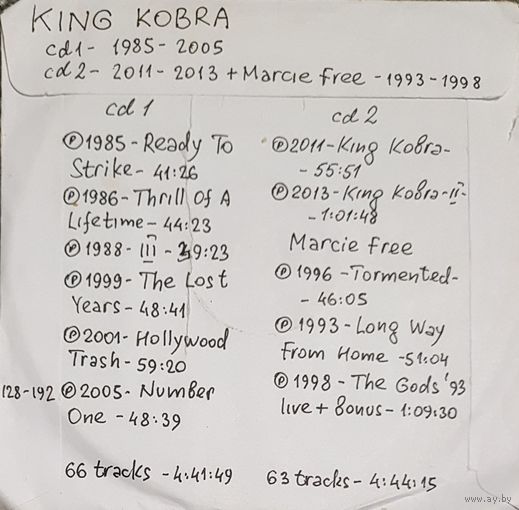 KING KOBRA
cd1- 1985-2005
cd2- 2011-2013 + Marcie Free -1993-1998
cd 1
Ⓟ1985-Ready To
Strike- 41:26
Ⓟ1986-Thrill Of A
Lifetime- 44:23
Ⓟ1988- III - 39:23
Ⓟ1999- The Lost
Years- 48:41
Ⓟ2001- Hollywood
Trash- 59:20
128-192 Ⓟ2005- Number
One -48:39
66 tracks -4:41:49
cd 2
Ⓟ2011-King Kobra-
- 55:51
Ⓟ2013-King Kobra-II-
-1:01:48
Marcie Free
Ⓟ1996 -Tormented-
- 46:05
Ⓟ1993-Long Way
From Home -51:04
Ⓟ1998 -The Gods '93
live + Bonus-1:09:30
63 tracks- 4:44:15
www.ay.by